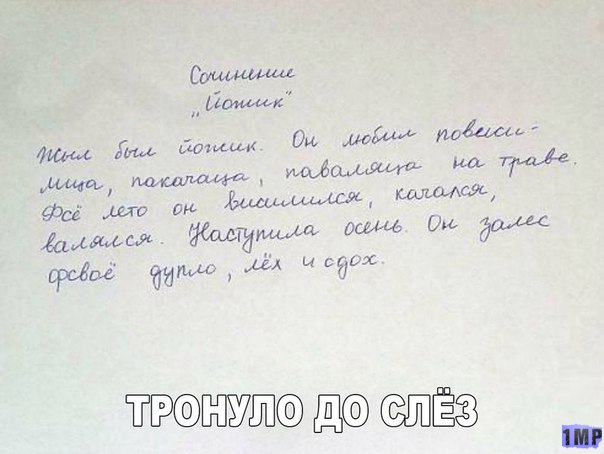 Сочинение
„Йожик"
Жыл был йожик. Он любил повесили-
мица, пакачаца, паваляца на траве.
Фсё лето он висилился, качался,
валялся. Наступила осень. Он залес
фсвоё дупло, лёх и сдох.
ТРОНУЛО ДО СЛЁЗ
1MP